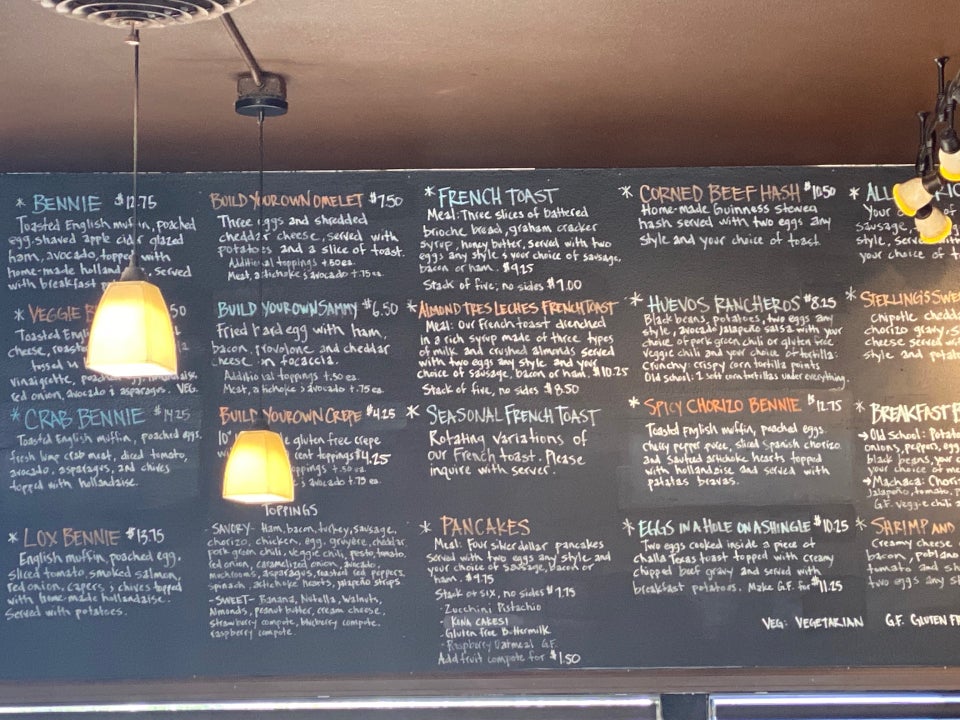 * BENNIE $12.75
Toasted English muffin, poached
egg, shaved apple cider glazed
ham, avocado, topped with
home-made served
with breakfast
* VEGGIE
Toasted
cheese,
tossed
vinaigrette,
red onion, avocado & asparagus. VEG.
* CRAB BENNIE $14.25
Toasted English muffin, poached eggs,
fresh lump crab meat, diced tomato,
avocado, asparagus, and chives
topped with hollandaise.
* LOX BENNIE $13.75
English muffin, poached egg,
sliced tomato, smoked salmon,
red onion, capers, & chives topped
with home-made hollandaise.
Served with potatoes.
BUILD YOUR OWN OMELET $7.50
Three eggs and shredded
cheddar cheese, served with
potatoes and a slice of toast.
Additional toppings +.50 ea.
Meat, artichoke & avocado +.75 ea.
BUILD YOUR OWN SAMMY $6.50
Fried hard egg with ham,
bacon, provolone, and cheddar
cheese on focaccia.
Additional toppings +.50 ea.
Meat, artichoke & avocado +.75 ea.
BUILD YOUR OWN CREPE $4.25
10" gluten free crepe
toppings $4.25
toppings +.50 ea.
avocado +.75 ea.
TOPPINGS
-SAVORY- Ham, bacon, turkey, sausage,
chorizo, chicken, egg, gruyere, cheddar,
pork green chili, veggie chili, pesto, tomato,
red onion, caramelized onion, avocado,
mushrooms, asparagus, roasted red peppers,
spinach, artichoke hearts, jalapeño strips.
-SWEET- Banana, Nutella, Walnuts,
Almonds, Peanut butter, cream cheese,
strawberry compote, blueberry compote,
raspberry compote.
* FRENCH TOAST
Meal: Three slices of battered
brioche bread, graham cracker
syrup, honey butter, served with two
eggs any style & your choice of sausage,
bacon or ham. $9.25
Stack of five, no sides $9.00
* ALMOND TRES LECHES FRENCH TOAST
Meal: Our French toast drenched
in a rich syrup made of three types
of milk and crushed almonds served
with two eggs any style and your
choice of sausage, bacon or ham. $10.25
Stack of five, no sides $9.50
* SEASONAL FRENCH TOAST
Rotating variations of
our French toast. Please
inquire with server.
* PANCAKES
Meal: Four silver dollar pancakes
served with two eggs any style and
your choice of sausage, bacon or
ham. $9.75
Stack of six, no sides $7.75
- Zucchini Pistachio
KONA CAKES!
- Gluten free Buttermilk
- Raspberry Oatmeal G.F.
Add fruit compote for $1.50
* CORNED BEEF HASH $10.50
Home-made Guinness stewed
hash served with two eggs any
style and your choice of toast
* HUEVOS RANCHEROS $8.25
Black beans, potatoes, two eggs any
style, avocado jalapeño salsa with your
choice of pork green chili or gluten free
veggie chili and your choice of tortilla:
Crunchy: crispy corn tortilla points
Old school: 2 soft corn tortillas under everything.
* SPICY CHORIZO BENNIE $12.75
Toasted English muffin, poached eggs
cherry pepper puree, sliced Spanish chorizo
and sautéed artichoke hearts topped
with hollandaise and served with
patatas bravas.
* EGGS IN A HOLE ON A SHINGLE $10.25
Two eggs cooked inside a piece of
challa Texas toast topped with creamy
chipped beef gravy and served with
breakfast potatoes. Make G.F. for $11.25
* ALL
Your
sausage,
style, served
your choice of
* STERLING'S SWE
Chipotle chedda
chorizo gravy,
cheese served
style and potat
* BREAKFAST B
→Old School: Potato
onions, peppers, egg
black beans,
your choice of
→Machaca: Choriz
jalapeño, tomato,
G.F. veggie chili
* SHRIMP AND
Creamy cheese
bacon, poblano
tomato and
two eggs any st
VEG: VEGETARIAN G.F. GLUTEN FR